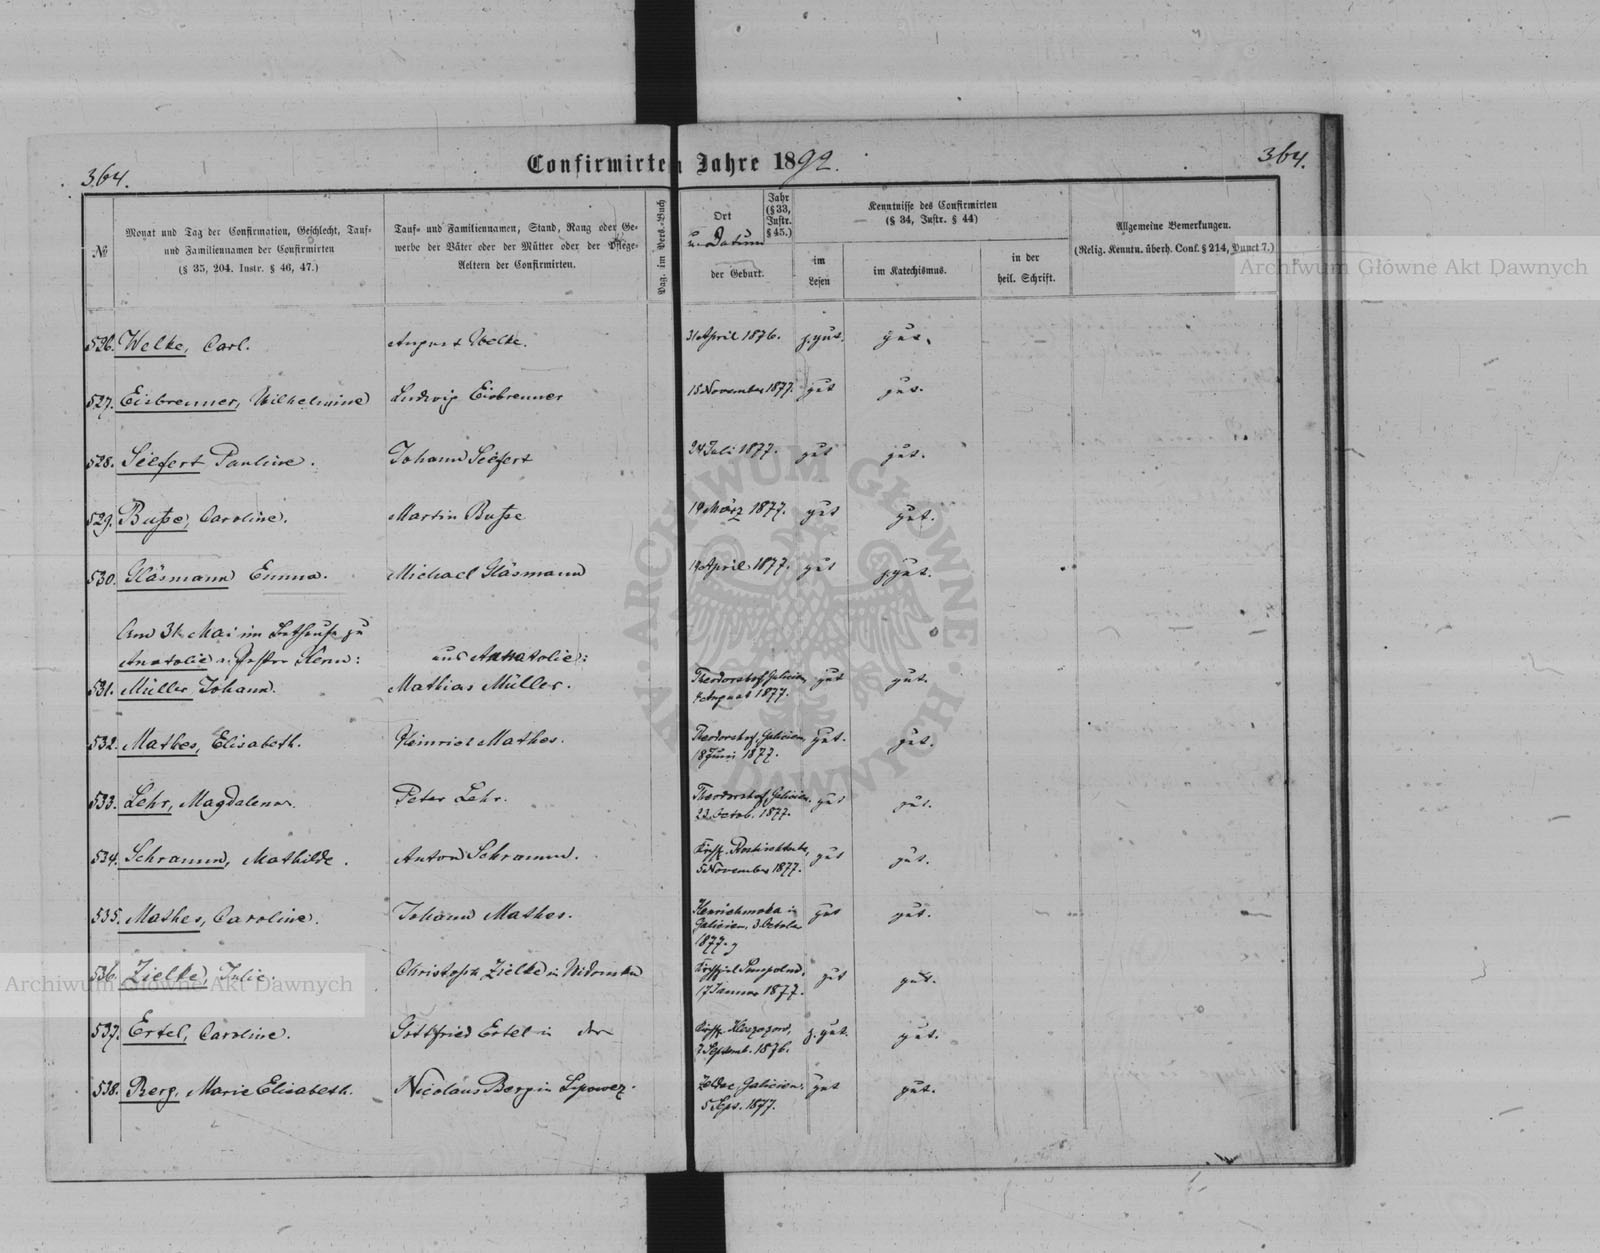 364.
Confirmirten Jahre 1892.
364.
№
Monat und Tag der Confirmation, Geschlecht, Tauf-
und Familiennamen der Confirmirten
(§ 35, 204. Instr. § 46, 47.)
Tauf- und Familiennamen, Stand, Rang oder Ge-
werbe der Väter oder der Mütter oder der Pflege-
Aeltern der Confirmirten.
Pag. im Pers.-Buch
Ort
u. Datum
der Geburt.
Jahr
(§ 33,
Instr.
§ 45.)
Kenntnisse des Confirmirten
(§ 34, Instr. § 44)
im
Lesen
im Katechismus.
in der
heil. Schrift.
Allgemeine Bemerkungen.
(Relig. Kenntn. überh. Conf. § 214, Punct 7.)
526. Welke, Carl. August Welke. 31 April 1876. z. gut. gut.
527. Eisbrenner, Wilhelmine Ludwig Eisbrenner 15 November 1877. gut gut.
528. Seifert Pauline. Johann Seifert 24 Juli 1877. gut gut.
529. Buße, Caroline. Martin Buße 19 März 1877. gut gut.
530. Gläsmann Emma. Michael Gläsmann April 1877. gut z. gut.
Am 31. Mai im Bethause zu
Anatolie
aus Anatolie:
531. Müller Johann. Mathias Müller. Theodorshof, Galicien, August 1877. gut gut.
532. Mathes, Elisabeth. Heinrich Mathes. Theodorshof, Galicien, 18 Juni 1877. gut. gut.
533. Lehr, Magdalena. Peter Lehr. Theodorshof, Galicien, 23 Octob. 1877. gut gut.
534. Schramm, Mathilde. Anton Schramm. Kirchsp. 5 November 1877. gut gut.
535. Mathes, Caroline. Johann Mathes. in Galicien, 3 October 1877. gut gut.
536. Zielke, Julie. Christoph Zielke in Kirchspiel 17 Januar 1877. gut gut.
537. Ertel, Caroline. Gottfried Ertel in Kirchsp. 7 Septemb. 1876. z. gut. gut.
538. Berg, Marie Elisabeth. Nicolaus Berg in Lipowez. Galicien. 5 Sept. 1877. gut gut.
ARCHIWUM GŁÓWNE AKT DAWNYCH
Archiwum Główne Akt Dawnych
Archiwum Główne Akt Dawnych